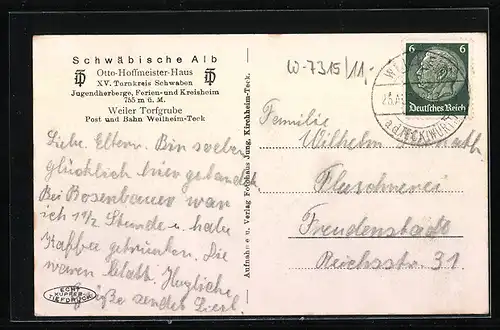 Schwäbische Alb
Otto-Hoffmeister-Haus
XV. Turnkreis Schwaben
Jugendherberge, Ferien- und Kreisheim
755 m ü. M.
Weiler Torfgrube
Post und Bahn Weilheim-Teck
Liebe Eltern. Bin soeben
glücklich hier gelandet.
Bei Bosenbauer war
ich 1 1/2 Stunde u. habe
Kaffee getrunken. Die
waren Herzliche
Grüße sendet
ECHT
KUPFER-
TIEFDRUCK
Aufnahme u. Verlag Fotohaus Jung, Kirchheim-Teck.
W-7315/11,-
6 6
Deutsches Reich
a.d. TECK (WÜRTT)
Familie
Wilhelm
Freudenstadt
Reichsstr. 31